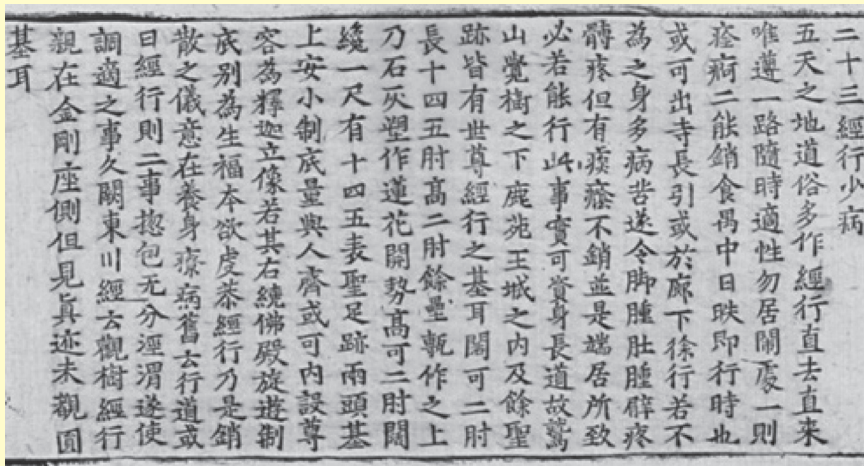 二十三經行少病
五天之地道俗多作經行直去直來
唯遵一路隨時適性勿居鬧處一則
痊痾二能銷食禺中日昳即行時也
或可出寺長引或於廊下徐行若不
為之身多病苦遂令脚腫肚腫臂疼
髆疼但有痰癊不銷並是端居所致
必若能行此事實可資身長道故鷲
山覺樹之下鹿苑王城之内及餘聖
跡皆有世尊經行之基耳闊可二肘
長十四五肘高二肘餘壘甎作之上
乃石灰塑作蓮花開勢高可二肘闊
纔一尺有十四五表聖足跡兩頭基
上安小制底量與人齊或可内設尊
容為釋迦立像若其右繞佛殿旋遊制
底別為生福本欲虔恭經行乃是銷
散之儀意在養身療病舊云行道或
曰經行則二事揔包无分涇渭遂使
調適之事久闕東川經云觀樹經行
親在金剛座側但見真迹未觀圓
基耳